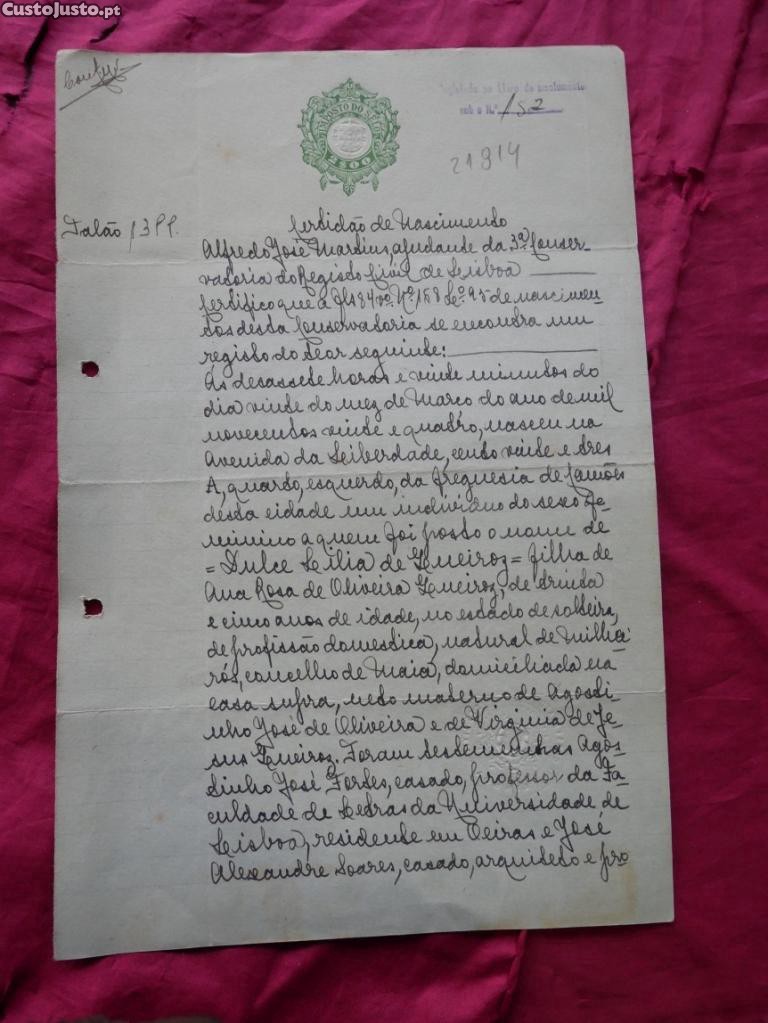 CustoJusto.pt
IMPOSTO DO SELO
2$00
no Livro de emolumentos
sob o N.º 152
21914
Talão 13
Certidão de Nascimento
Alfredo José Martins, ajudante da 3ª Conser-
vatoria do Registo Civil de Lisboa
Certifico que a fls 84 vº. Nº. 168 Lº. 95 de nascimen-
tos desta Conservatoria se encontra um
registo do teor seguinte:
Ás desassete horas e vinte minutos do
dia vinte do mez de Março do ano de mil
novecentos vinte e quatro, nasceu na
Avenida da Leiberdade, cento vinte e tres
A, quarto, esquerdo, da freguesia de Camões
desta cidade um individuo do sexo fe-
minino a quem foi posto o nome de
= Dulce Leilia de Queiroz = filha de
Ana Rosa de Oliveira Queiroz, de trinta
e cinco anos de idade, no estado de solteira,
de profissão domestica, natural de Milhei-
rós, concelho de Maia, domiciliada na
casa supra, neto materno de Agosti-
nho José de Oliveira e de Virginia de Je-
sus Queiroz. Foram testemunhas Agos-
tinho José Fortes, casado, professor da Fa-
culdade de Letras da Universidade de
Leisboa, residente em Oeiras e José
Alexandre Soares, casado, arquiteto e pro